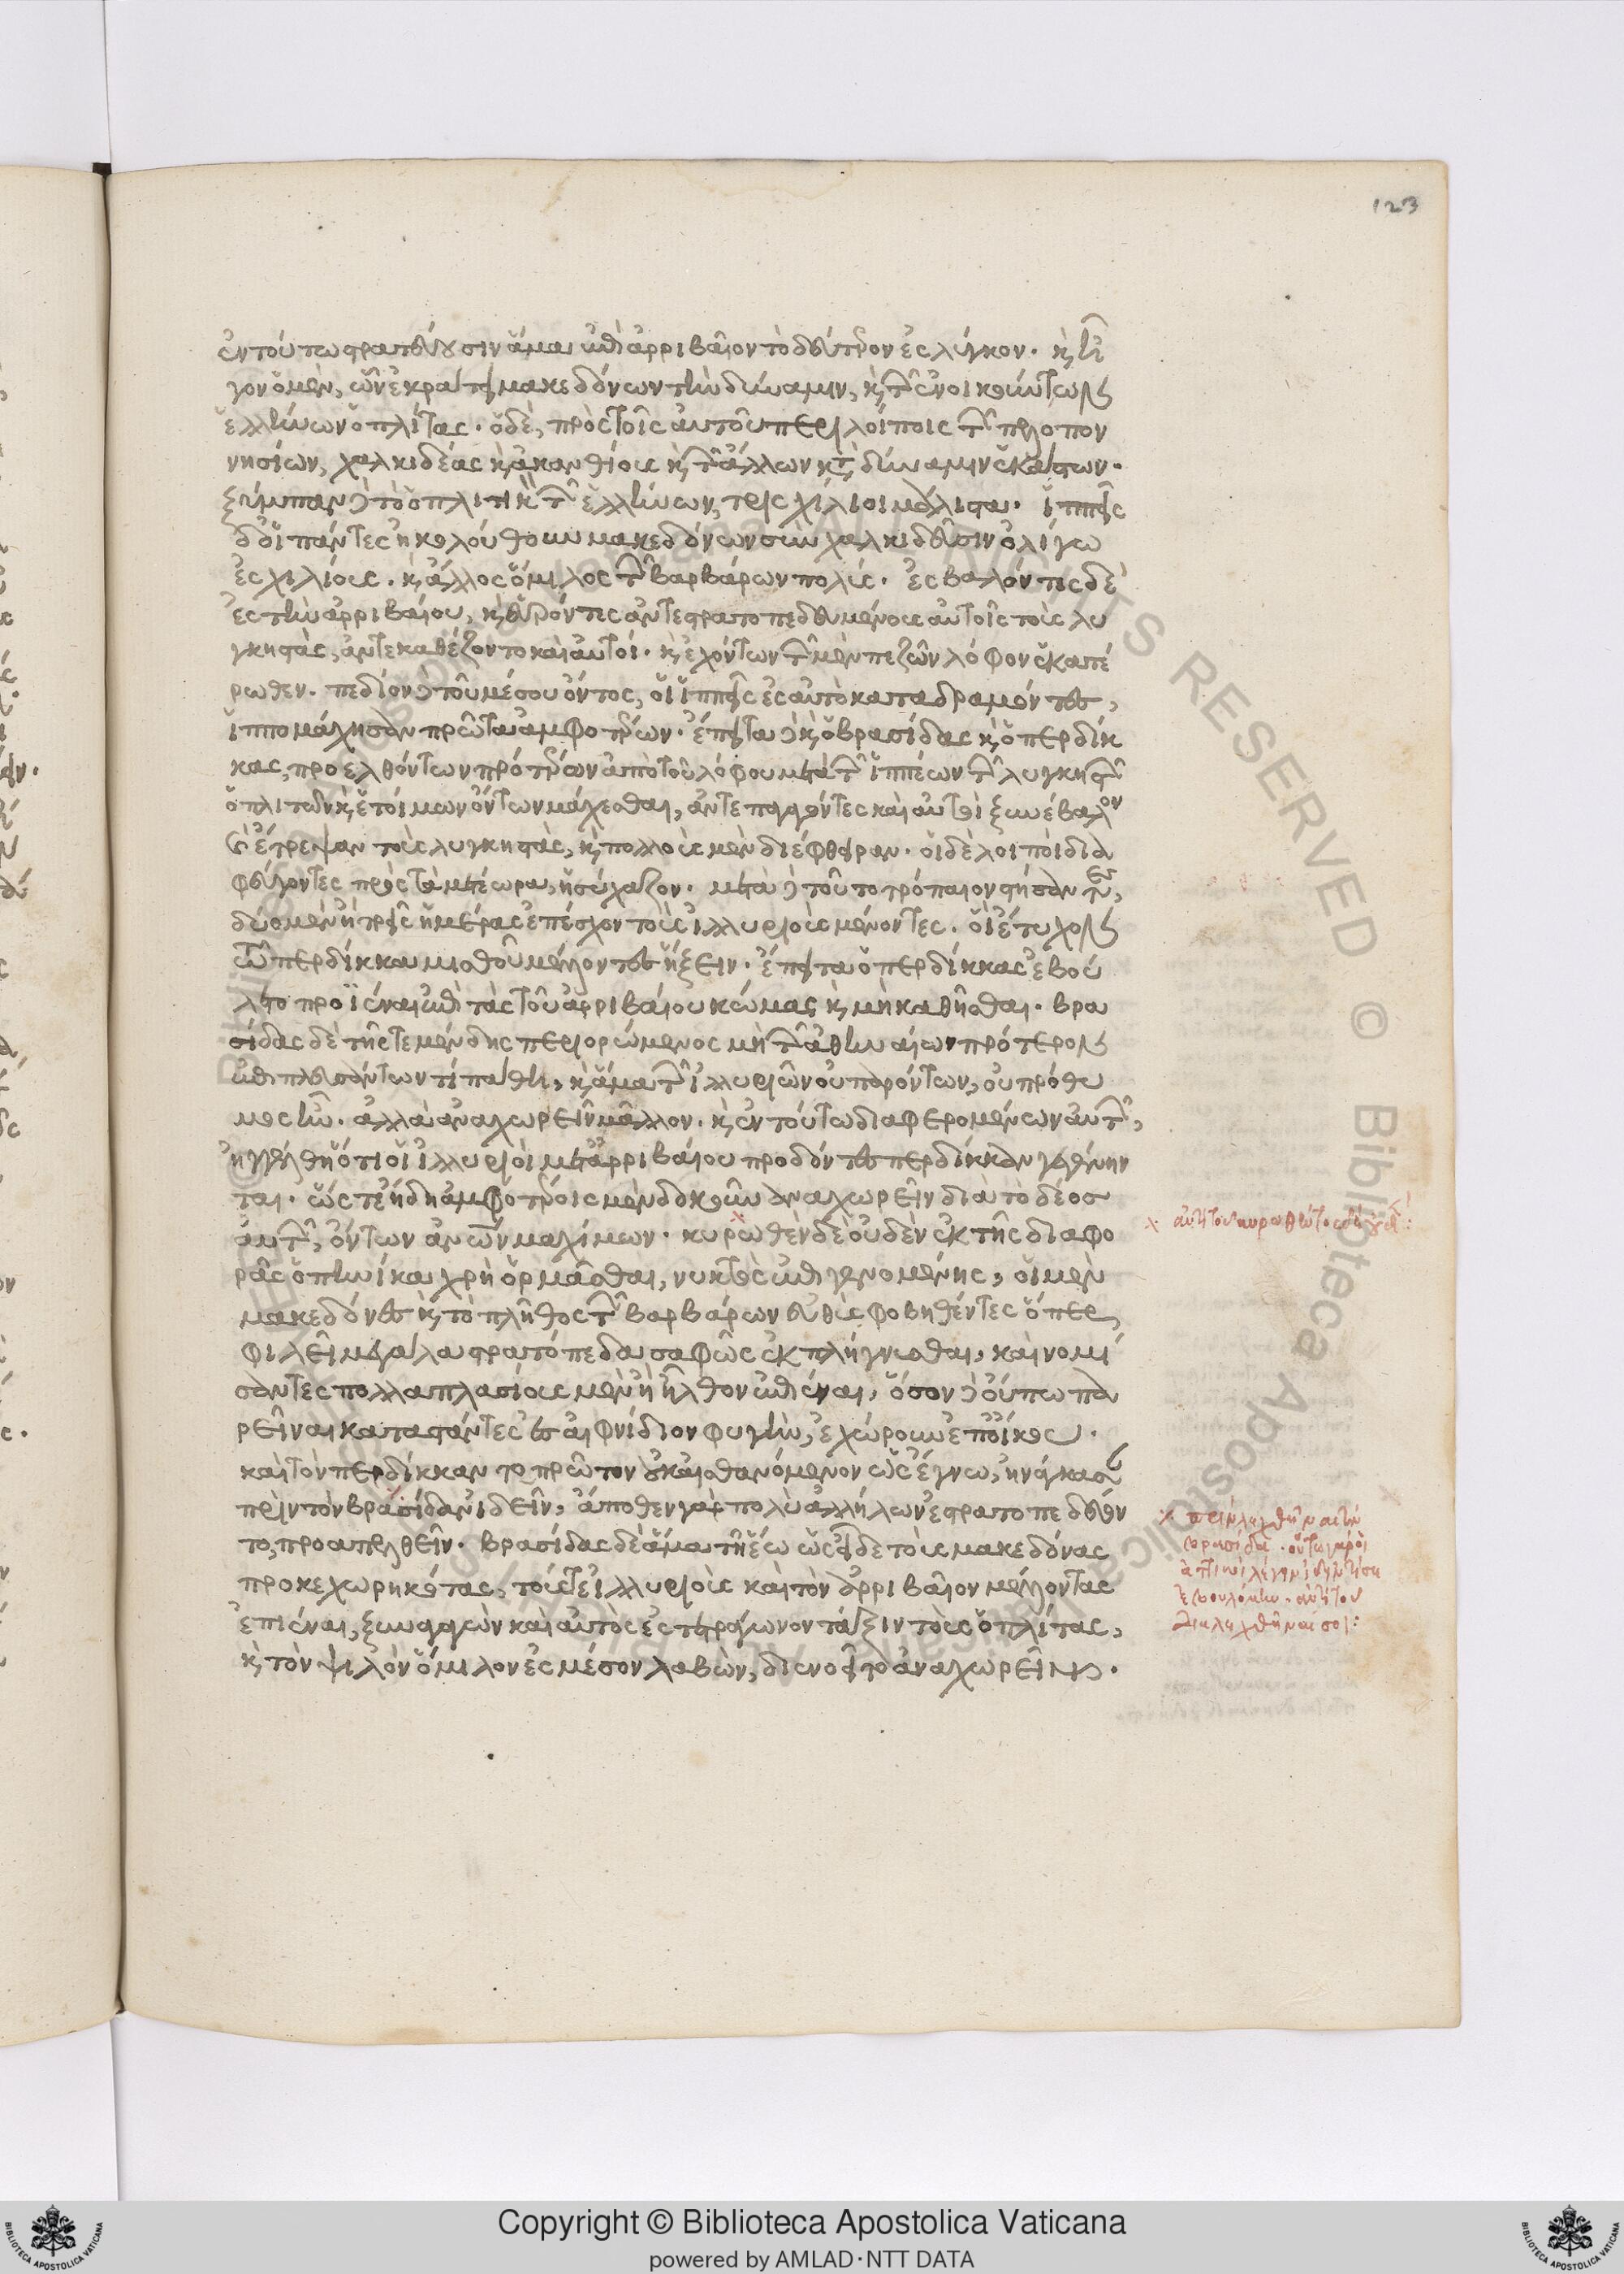 ἐν τούτω στρατεύουσιν ἅμα ἐπὶ ἀρριβαῖον τὸ δεύτερον ἐς λύγκον. καὶ ἦ
γον ὁ μὲν, ὧν ἐκράτει μακεδόνων τὴν δύναμιν, καὶ τῶν ἐνοικούντων
ἑλλήνων ὁπλίτας. ὁ δὲ, πρὸς τοῖς αὐτοῦ περιλοίποις τῶν πελοπον
νησίων, χαλκιδέας καὶ ἀκανθίους καὶ τῶν ἄλλων κατὰ δύναμιν ἑκάστων.
ξύμπαν δὲ τὸ ὁπλιτικὸν τῶν ἑλλήνων, τρισχίλιοι μάλιστα. ἱππῆς
δ' οἱ πάντες ἠκολούθουν μακεδόνων σὺν χαλκιδεῦσιν ὀλίγω
ἐς χιλίους. καὶ ἄλλος ὅμιλος τῶν βαρβάρων πολύς. ἐσβαλόντες δὲ
ἐς τὴν ἀρριβαίου, καὶ εὑρόντες ἀντεστρατοπεδευμένους αὐτοῖς τοὺς λυ
γκηστὰς, ἀντεκαθέζοντο καὶ αὐτοί. καὶ ἐχόντων τῶν μὲν πεζῶν λόφον ἑκατέ
ρωθεν. πεδίον δὲ τοῦ μέσου ὄντος, οἱ ἱππῆς ἐς αὐτὸ καταδραμόντες,
ἱππομάχησαν πρῶτα ἀμφοτέρων. ἔπειτα δὲ καὶ ὁ βρασίδας καὶ ὁ περδίκ
κας, προελθόντων προτέρων ἀπὸ τοῦ λόφου μετὰ τῶν ἱππέων τῶν λυγκηστῶν
ὁπλιτῶν καὶ ἑτοίμων ὄντων μάχεσθαι, ἀντεπαγαγόντες καὶ αὐτοὶ ξυνέβαλον
καὶ ἔτρεψαν τοὺς λυγκηστὰς, καὶ πολλοὺς μὲν διέφθειραν. οἱ δὲ λοιποὶ δια
φεύγοντες πρὸς τὰ μετέωρα, ἡσύχαζον. μετὰ δὲ τοῦτο τρόπαιον στήσαντες,
δύο μὲν ἢ τρεῖς ἡμέρας ἐπέσχον τοὺς ἰλλυριοὺς μένοντες. οἳ ἔτυχον
τῶ περδίκκα μισθοῦ μέλλοντες ἥξειν. ἔπειτα ὁ περδίκκας ἐβού
λετο προϊέναι ἐπὶ τὰς τοῦ ἀρριβαίου κώμας καὶ μὴ καθῆσθαι. βρα
σίδας δὲ τῆς τε μένδης περιορώμενος μὴ τῶν ἀθηναίων πρότερον
ἐπιπλευσάντων τι πάθη, καὶ ἅμα τῶν ἰλλυριῶν οὐ παρόντων, οὐ πρόθυ
μος ἦν. ἀλλὰ ἀναχωρεῖν μᾶλλον. καὶ ἐν τούτω διαφερομένων αὐτῶν,
ἠγγέλθη ὅτι οἱ ἰλλυριοὶ μετ' ἀρριβαίου προδόντες περδίκκαν γεγένην
ται. ὥς τε ἤδη ἀμφοτέροις μὲν δοκοῦν ἀναχωρεῖν διὰ τὸ δέος
αὐτῶν, ὄντων ἀνθρώπων μαχίμων. κυρωθὲν δὲ οὐδὲν ἐκ τῆς διαφο
ρᾶς ὁπηνίκα χρὴ ὁρμᾶσθαι, νυκτός ἐπιγενομένης, οἱ μὲν
μακεδόνες καὶ τὸ πλῆθος τῶν βαρβάρων εὐθὺς φοβηθέντες ὅπερ
φιλεῖ μεγάλα στρατόπεδα σαφῶς ἐκπλήγνυσθαι, καὶ νομί
σαντες πολλαπλασίους μὲν ἢ ἦλθον ἐπιέναι, ὅσον δὲ οὔπω πα
ρεῖναι καταστάντες ἐς αἰφνίδιον φυγὴν, ἐχώρουν ἐπ' οἴκου.
καὶ τὸν περδίκκαν το πρῶτον οὐκ αἰσθανόμενον ὡς ἔγνω, ἠνάγκασαν
πρὶν τὸν βρασίδαν ἰδεῖν, ἄποθεν γὰρ πολὺ ἀλλήλων ἐστρατοπεδεύον
το, προαπελθεῖν. βρασίδας δὲ ἅμα τῆ ἕω ὡς εἶδε τοὺς μακεδόνας
προκεχωρηκότας, τούς τε ἰλλυριοὺς καὶ τὸν ἀρριβαῖον μέλλοντας
ἐπιέναι, ξυναγαγὼν καὶ αὐτὸς ἐς τετράγωνον τάξιν τοὺς ὁπλίτας,
καὶ τὸν ψιλὸν ὅμιλον ἐς μέσον λαβὼν, διενοεῖτο ἀναχωρεῖν.
123
ἀντὶ τοῦ κυρωθέντος
βρασίδα
ἀντὶ τοῦ
διαλεχθῆναί σοι:
Copyright © Biblioteca Apostolica Vaticana
powered by AMLAD·NTT DATA